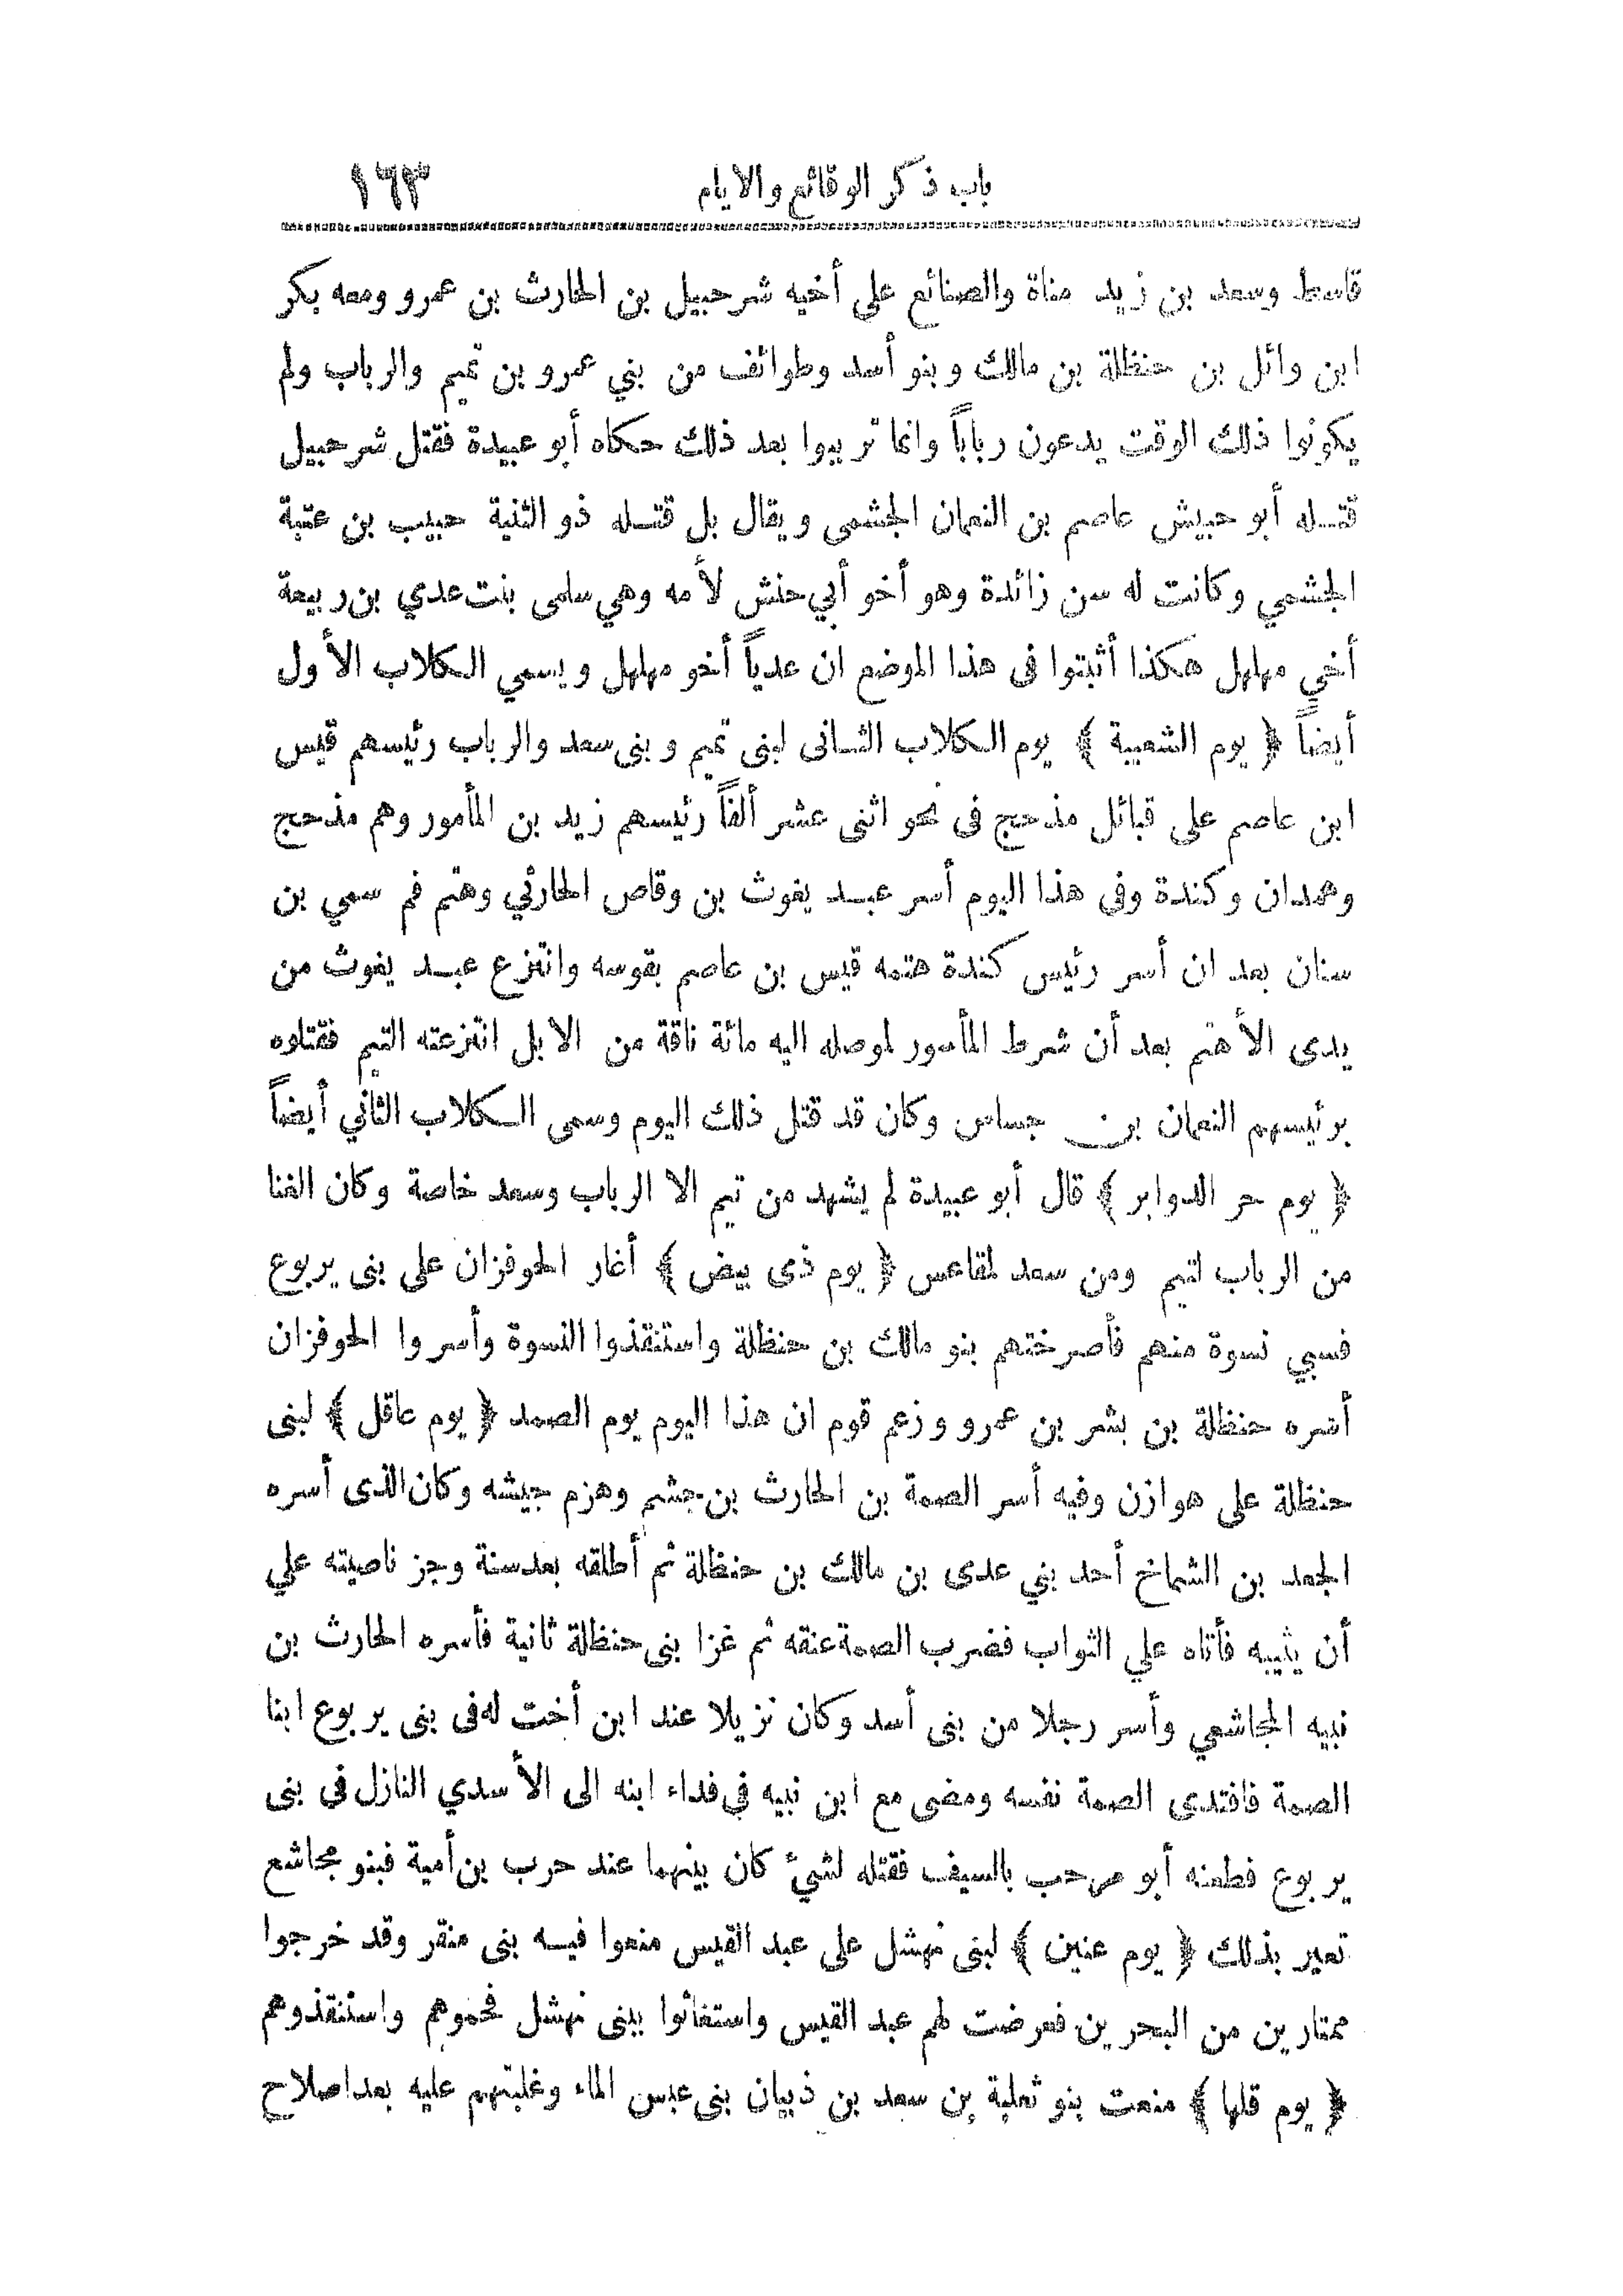 باب ذكر الوقائع والايام ١٦٣
قاسط وسعد بن زيد مناة والصنائع على أخيه شرحبيل بن الحارث بن عمرو ومعه بكر
ابن وائل بن حنظلة بن مالك وبنو أسد وطوائف من بني عمرو بن تميم والرباب ولم
يكونوا ذلك الوقت يدعون رباباً وانما ترببوا بعد ذلك حكاه أبو عبيدة فقتل شرحبيل
قتله أبو حبيش عاصم بن النعمان الجشمى ويقال بل قتله ذو الثنية حبيب بن عتبة
الجشمي وكانت له سن زائدة وهو أخو أبي حنش لأمه وهي سلمى بنت عدي بن ربيعة
أخي مهلهل هكذا أثبتوا فى هذا الموضع ان عدياً أخو مهلهل ويسمي الكلاب الأول
أيضاً ﴿ يوم الشعيبة ﴾ يوم الكلاب الثانى لبنى تميم وبنى سعد والرباب رئيسهم قيس
ابن عاصم على قبائل مذحج فى نحو اثنى عشر ألفاً رئيسهم زيد بن المأمور وهم مذحج
وهمدان وكندة وفى هذا اليوم أسر عبد يغوث بن وقاص الحارثي وهتم فم سمي بن
سنان بعد ان أسر رئيس كندة هتمه قيس بن عاصم بقوسه وانتزع عبد يغوث من
يدى الأهتم بعد أن شرط المأسور لموصله اليه مائة ناقة من الابل انتزعته التيم فقتلوه
برئيسهم النعمان بن جساس وكان قد قتل ذلك اليوم وسمى الكلاب الثاني أيضاً
﴿ يوم حر الدوابر ﴾ قال أبو عبيدة لم يشهد من تيم الا الرباب وسعد خاصة وكان الغنا
من الرباب لتيم ومن سعد لمقاعس ﴿ يوم ذى بيض ﴾ أغار الحوفزان على بنى يربوع
فسبي نسوة منهم فأصرختهم بنو مالك بن حنظلة واستنقذوا النسوة وأسروا الحوفزان
أسره حنظلة بن بشر بن عمرو وزعم قوم ان هذا اليوم يوم الصمد ﴿ يوم عاقل ﴾ لبنى
حنظلة على هوازن وفيه أسر الصمة بن الحارث بن جشم وهزم جيشه وكان الذى أسره
الجعد بن الشماخ أحد بني عدى بن مالك بن حنظلة ثم أطلقه بعد سنة وجز ناصيته علي
أن يثيبه فأتاه علي الثواب فضرب الصمة عنقه ثم غزا بنى حنظلة ثانية فأسره الحارث بن
نبيه المجاشعي وأسر رجلا من بنى أسد وكان نزيلا عند ابن أخت له فى بنى يربوع ابنا
الصمة فافتدى الصمة نفسه ومضى مع ابن نبيه في فداء ابنه الى الأسدي النازل فى بنى
يربوع فطعنه أبو مرحب بالسيف فقتله لشيء كان بينهما عند حرب بن أمية فبنو مجاشع
تعير بذلك ﴿ يوم عنين ﴾ لبنى نهشل على عبد القيس منعوا فيه بنى منقر وقد خرجوا
ممتارين من البحرين فعرضت لهم عبد القيس واستغاثوا ببنى نهشل فحموهم واستنقذوهم
﴿ يوم قلها ﴾ منعت بنو ثعلبة بن سعد بن ذبيان بنى عبس الماء وغلبتهم عليه بعد اصلاح